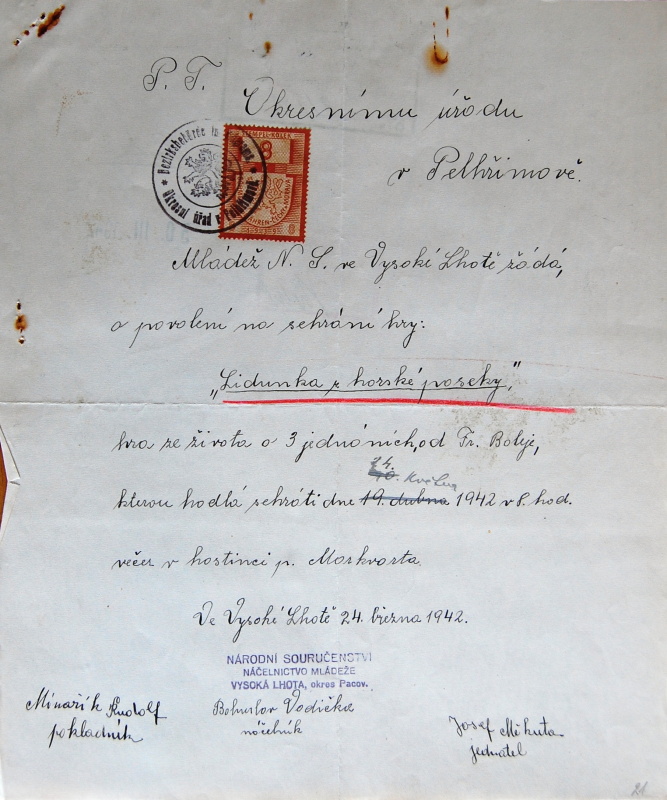 P. T.
Okresnímu úřadu
v Pelhřimově.
Okresní úřad v Pelhřimově
8
Mládež N. S. ve Vysoké Lhotě žádá,
o povolení na sehrání hry:
„Lidunka z horské paseky,"
hra ze života o 3 jednáních, od Fr. Boleje,
24.
10. Května
kterou hodlá sehráti dne 19. dubna 1942 v 8. hod.
večer v hostinci p. Moskvarta.
Ve Vysoké Lhotě 24. března 1942.
NÁRODNÍ SOURUČENSTVÍ
NÁČELNICTVO MLÁDEŽE
VYSOKÁ LHOTA, okres Pacov.
Minařík Rudolf
pokladník
Bohuslav Vodička
náčelník
Josef Mikuta
jednatel
21